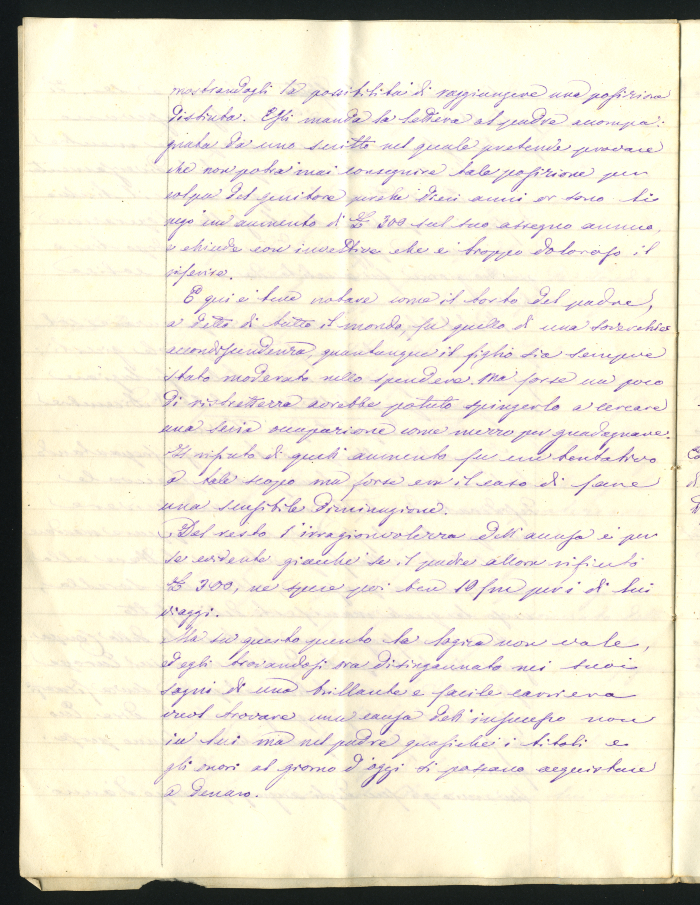 mostrandogli la possibilità di raggiungere una posizione
distinta. Egli manda la lettera al padre accompa-
gnata da uno scritto nel quale pretende provare
che non potrà mai conseguire tale posizione per
colpa del genitore perchè dieci anni or sono gli
negò un aumento di £ 300 sul suo assegno annuo,
e chiude con invettive che è troppo doloroso il
riferire.
E qui è bene notare come il torto del padre,
a detta di tutto il mondo, fu quello di una soverchia
accondiscendenza, quantunque il figlio sia sempre
stato moderato nello spendere. Ma forse un poco
di ristrettezza avrebbe potuto spingerlo a cercare
una seria occupazione come mezzo per guadagnare.
Il rifiuto di quell'aumento fu un tentativo
a tale scopo ma forse era il caso di fare
una sensibile diminuzione.
Del resto l'irragionevolezza dell'accusa è per
se evidente giacchè se il padre allora rifiutò
£ 300, ne spese poi ben 10 per i di lui
viaggi.
Ma su questo punto la logica non vale,
ed egli trovandosi ora disingannato nei suoi
sogni di una brillante e facile carriera
vuol trovare una causa dell'insuccesso non
in lui ma nel padre quasichè i titoli e
gli onori al giorno d'oggi si possano acquistare
a denaro.